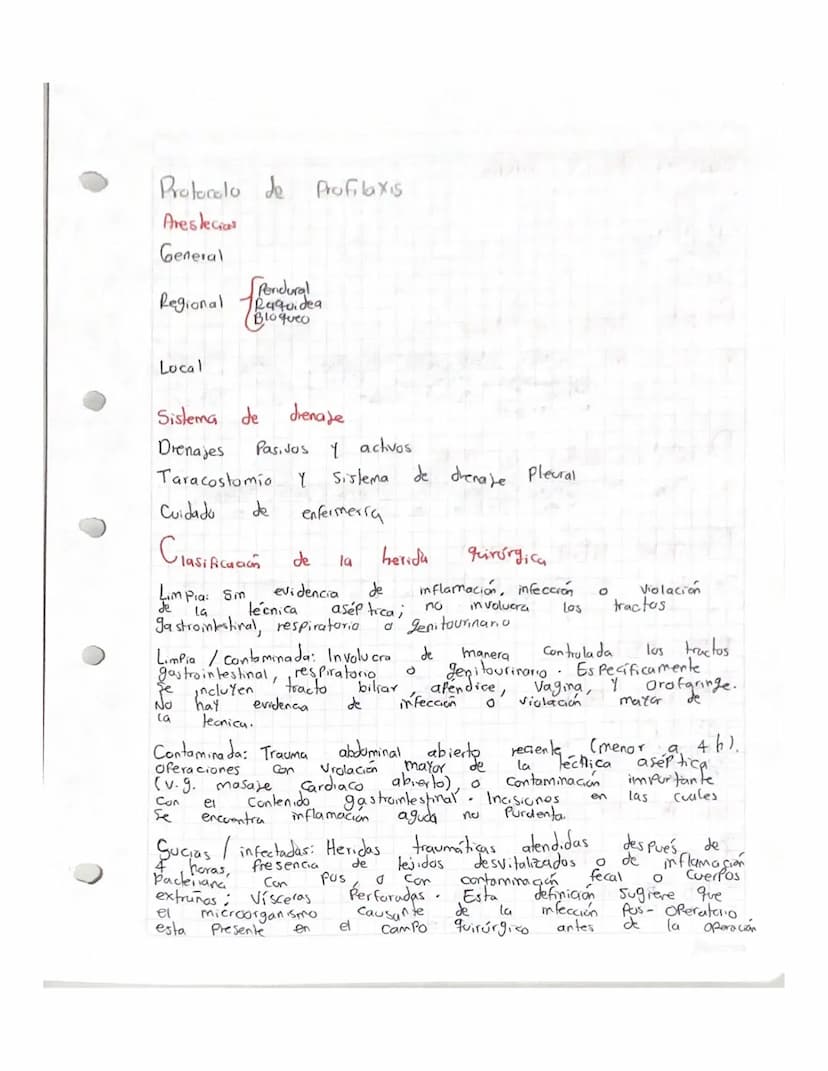 Protocolo de Profilaxis
Anestecias
General
Regional
Peridural
Raquidea
Bloqueo
Local
Sistema de drenaje
Drenajes Pasivos y activos
Taracostomio y Sistema de drenaje Pleural
Cuidado de enfermería
Clasificación de la herida quirúrgica
Limpia: Sin evidencia de inflamación, infección o violación
de la técnica aséptica; no involucra los tractos
gastrointestinal, respiratorio o genitourinario
Limpia / contaminada: Involucra de manera controlada los tractos
gastrointestinal, respiratorio o genitourinario. Específicamente
se incluyen tracto biliar, apéndice, vagina, y orofaringe.
No hay evidencia de infección o violación mayor de
la tecnica.
Contaminada: Trauma abdominal abierto reciente (menor a 4 h).
Operaciones con violación mayor de la técnica aséptica
(v.g. masaje cardiaco abierto), o contaminación importante
con el contenido gastrointestinal. Incisiones en las cuales
se encuentra inflamación aguda no purulenta.
Sucias / infectadas: Heridas traumáticas atendidas después de
4 horas, presencia de tejidos desvitalizados o de inflamación
bacteriana con pus, o con contaminación fecal o cuerpos
extraños; Vísceras Perforadas. Esta definición sugiere que
el microorganismo causante de la infección pos-operatorio
esta presente en el campo quirúrgico antes de la operación